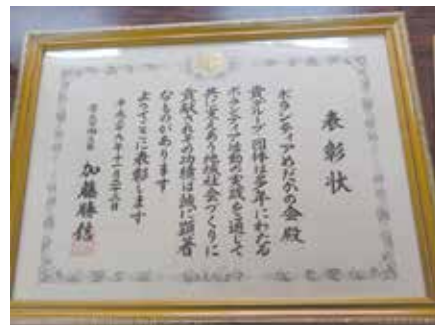 表彰状
ボランティアめだかの会殿
貴グループ団体は多年にわたる
ボランティア活動の実践を通して
共に支えあう地域社会づくりに
貢献されその功績は誠に顕著
なものがあります
よってここに表彰します
平成二十九年十一月二十二日
厚生労働大臣 加藤勝信